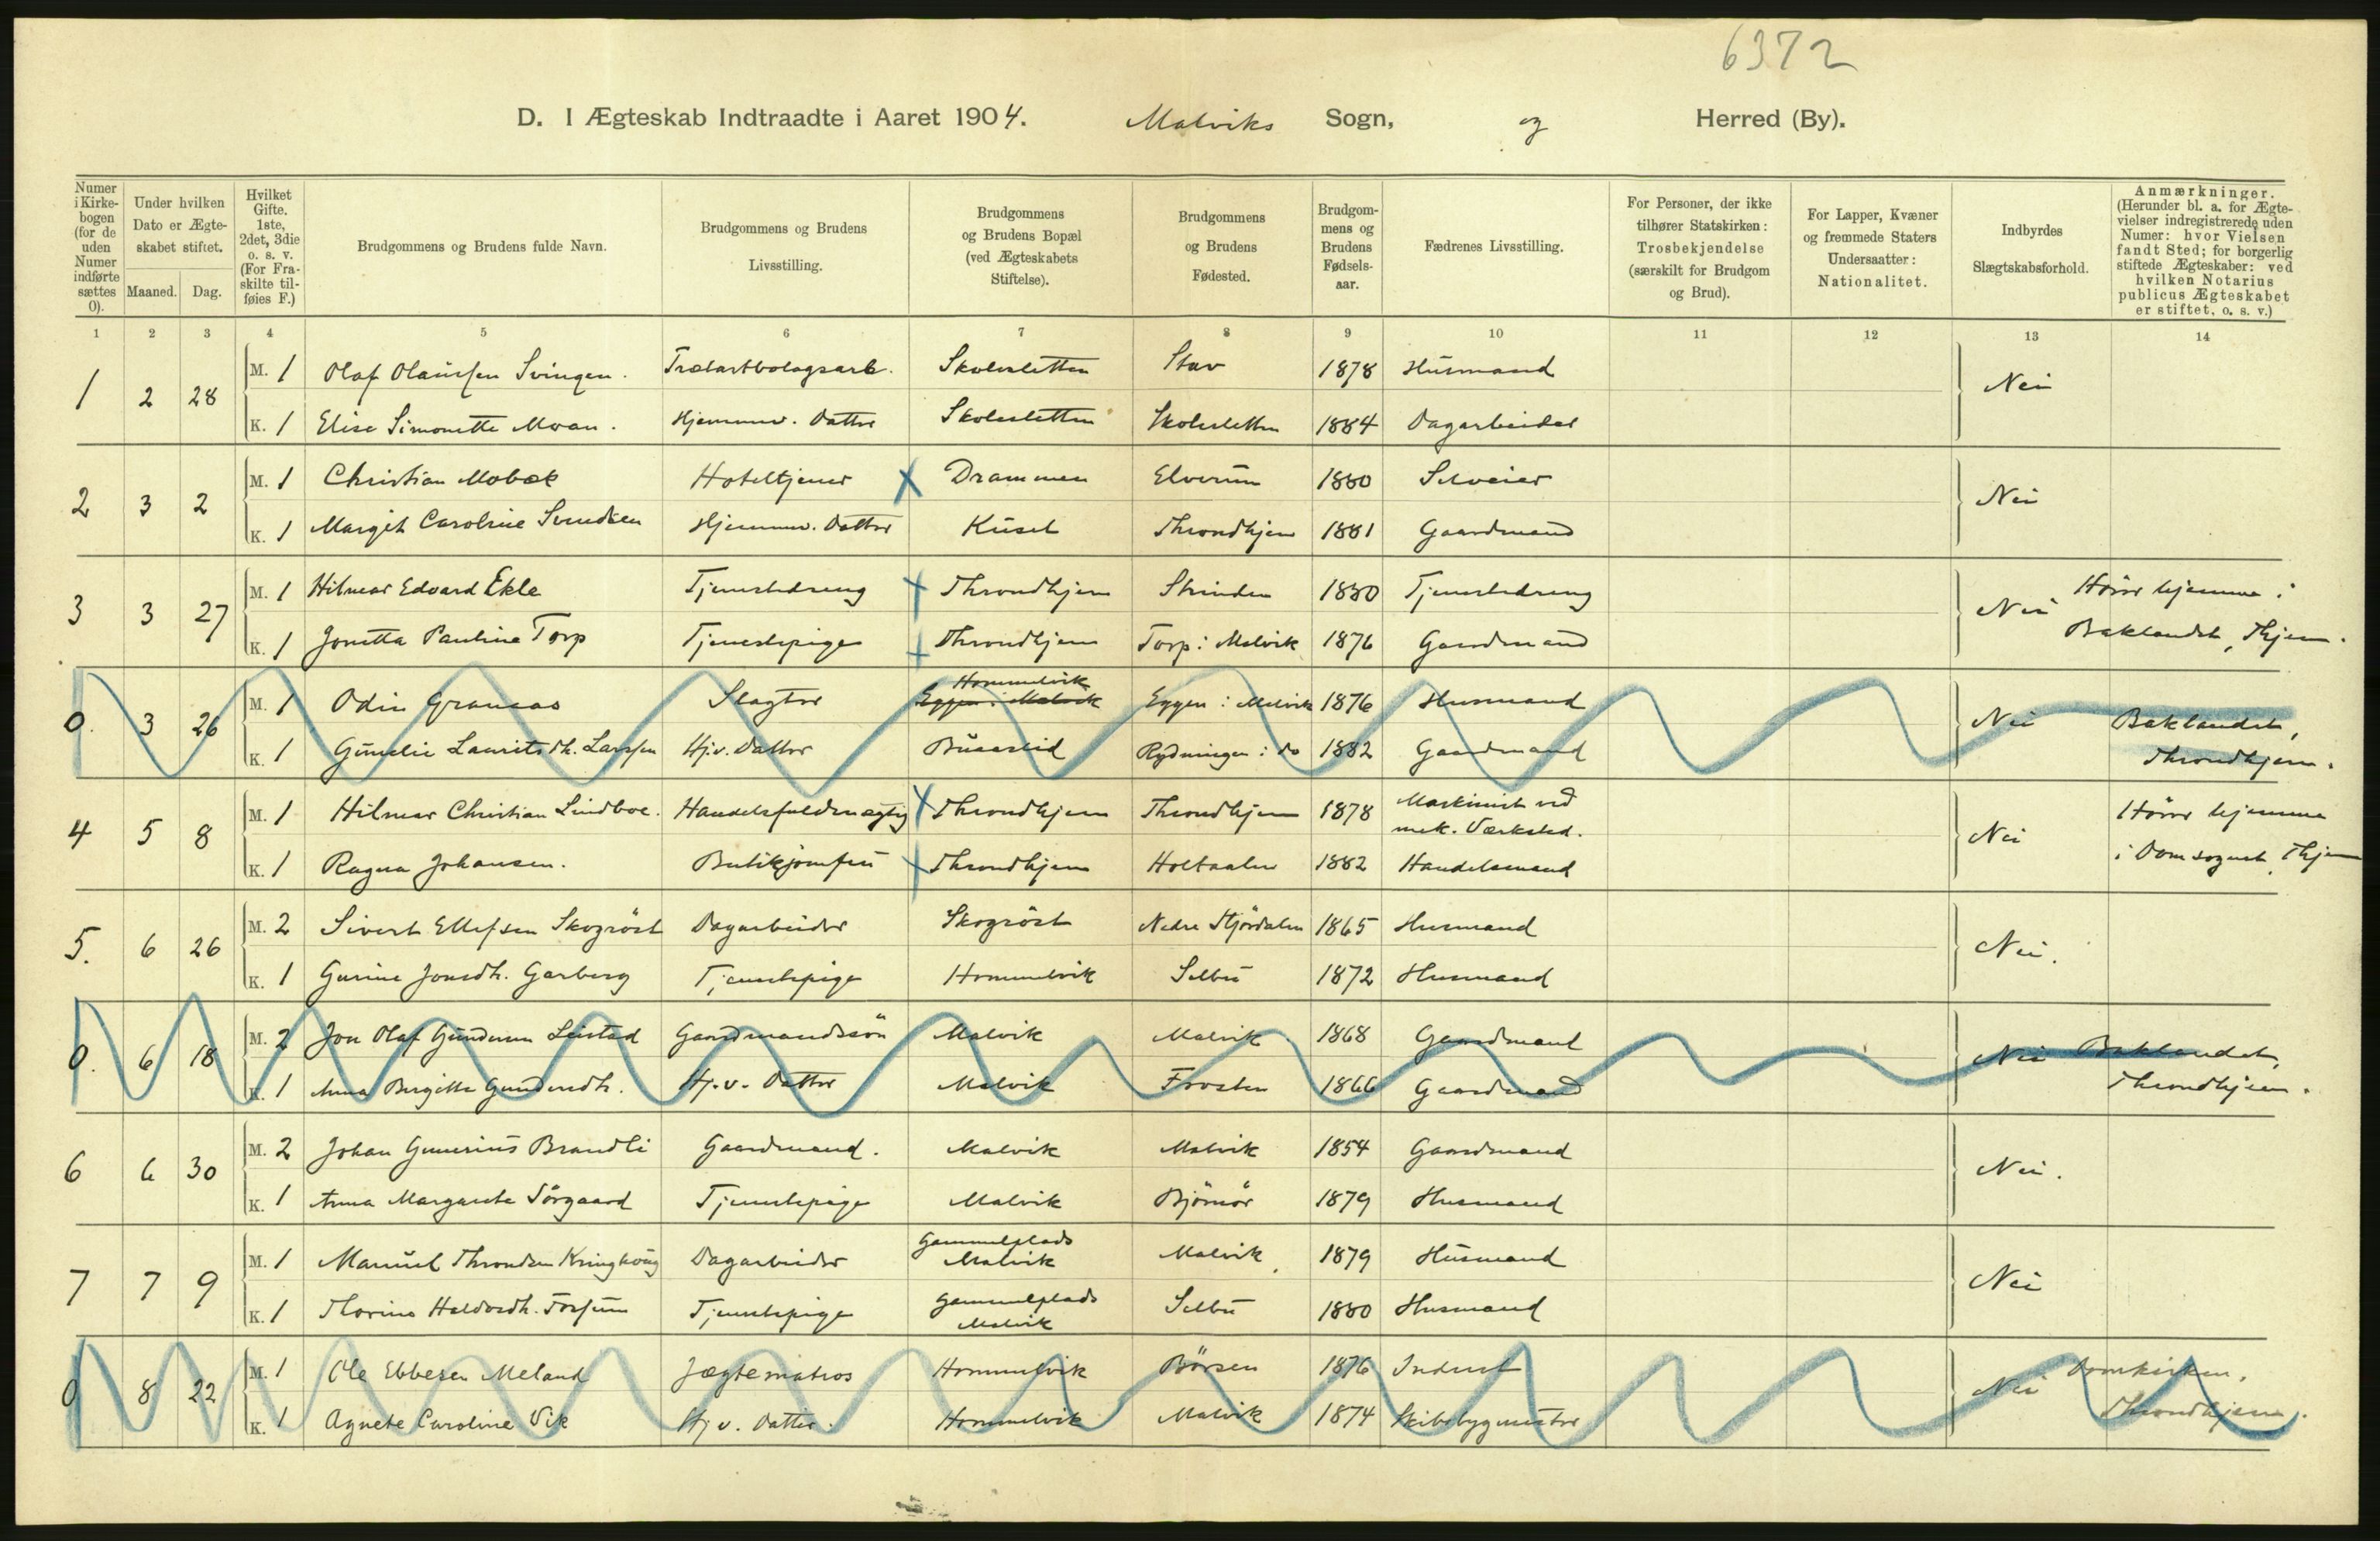 6372
D. I Ægteskab Indtraadte i Aaret 1904. Malviks Sogn, og Herred (By).
Numer i Kirkebogen (for de uden Numer indførte sættes 0).
Under hvilken Dato er Ægteskabet stiftet.
Maaned. Dag.
Hvilket Gifte. 1ste, 2det, 3die o. s. v. (For Fraskilte tilføies F.)
Brudgommens og Brudens fulde Navn.
Brudgommens og Brudens Livsstilling.
Brudgommens og Brudens Bopæl (ved Ægteskabets Stiftelse).
Brudgommens og Brudens Fødested.
Brudgommens og Brudens Fødselsaar.
Fædrenes Livsstilling.
For Personer, der ikke tilhører Statskirken: Trosbekjendelse (særskilt for Brudgom og Brud).
For Lapper, Kvæner og fremmede Staters Undersaatter: Nationalitet.
Indbyrdes Slægtskabsforhold.
Anmærkninger. (Herunder bl. a. for Ægtevielser indregistrerede uden Numer: hvor Vielsen fandt Sted; for borgerlig stiftede Ægteskaber: ved hvilken Notarius publicus Ægteskabet er stiftet, o. s. v.)
1 2 3 4 5 6 7 8 9 10 11 12 13 14
1 2 28 M. 1 Olaf Svingen. Skolesletten Stav 1878 Husmand Nei
K. 1 Elise Simonette Moan. Hjemmev. Datter Skolesletten Skolesletten 1884 Dagarbeider
2 3 2 M. 1 Christian Mobæk Hoteltjener Drammen Elverum 1880 Selveier Nei
K. 1 Margit Caroline Svendsen Hjemmev. Datter Kuset Throndhjem 1881 Gaardmand
3 3 27 M. 1 Hilmar Edvard Ekle Tjenestedreng Throndhjem Strinden 1880 Tjenestedreng Nei Hører hjemme i
K. 1 Jonetta Pauline Torp Tjenestepige Throndhjem Torp i Malvik 1876 Gaardmand Baklandet, Thjem.
0. 3 26 M. 1 Odin Hommelvik Eggen i Malvik Eggen i Malvik 1876 Husmand Nei Baklandet,
K. 1 Laurits dt. Larssen Hj.v. Datter Rydningen i do 1882 Gaardmand Throndhjem.
4 5 8 M. 1 Hilmar Christian Lindboe. Handelsfuldmægtig Throndhjem Throndhjem 1878 Maskinist ved mek. Værksted. Nei Hører hjemme
K. 1 Ragna Johansen. Butikjomfru Throndhjem Holtaalen 1882 Handelsmand i Domsognet, Thjem
5. 6 26 M. 2 Sivert Ellefsen Skogröst Dagarbeider Skogröst Nedre Stjördalen 1865 Husmand Nei.
K. 1 Gurine Jonsdt. Garberg Tjenestepige Hommelvik Selbu 1872 Husmand
0. 6 18 M. 2 Jon Olaf Gundersen Leistad Gaardmandssön Malvik Malvik 1868 Gaardmand Nei Baklandet,
K. 1 Anna Bergitte Hj.v. Datter Malvik Frosten 1866 Gaardmand Throndhjem.
6 6 30 M. 2 Johan Gunerius Brandli Gaardmand. Malvik Malvik 1854 Gaardmand Nei.
K. 1 Anna Margarete Sörgaard Tjenestepige Malvik Bjömör 1879 Husmand
7 7 9 M. 1 Manuel Throndsen Kringhoug Dagarbeider Gammelplads Malvik Malvik. 1879 Husmand Nei
K. 1 Thorine Haldordt. Fossum Tjenestepige Gammelplads Malvik Selbu 1880 Husmand
0 8 22 M. 1 Ole Ebbesen Meland Jægtematros Hommelvik Börsen 1876 Inderst Nei Domkirken,
K. 1 Agnete Caroline Vik Hj v. Datter. Hommelvik Malvik 1874 Skibsbygmester Throndhjem.